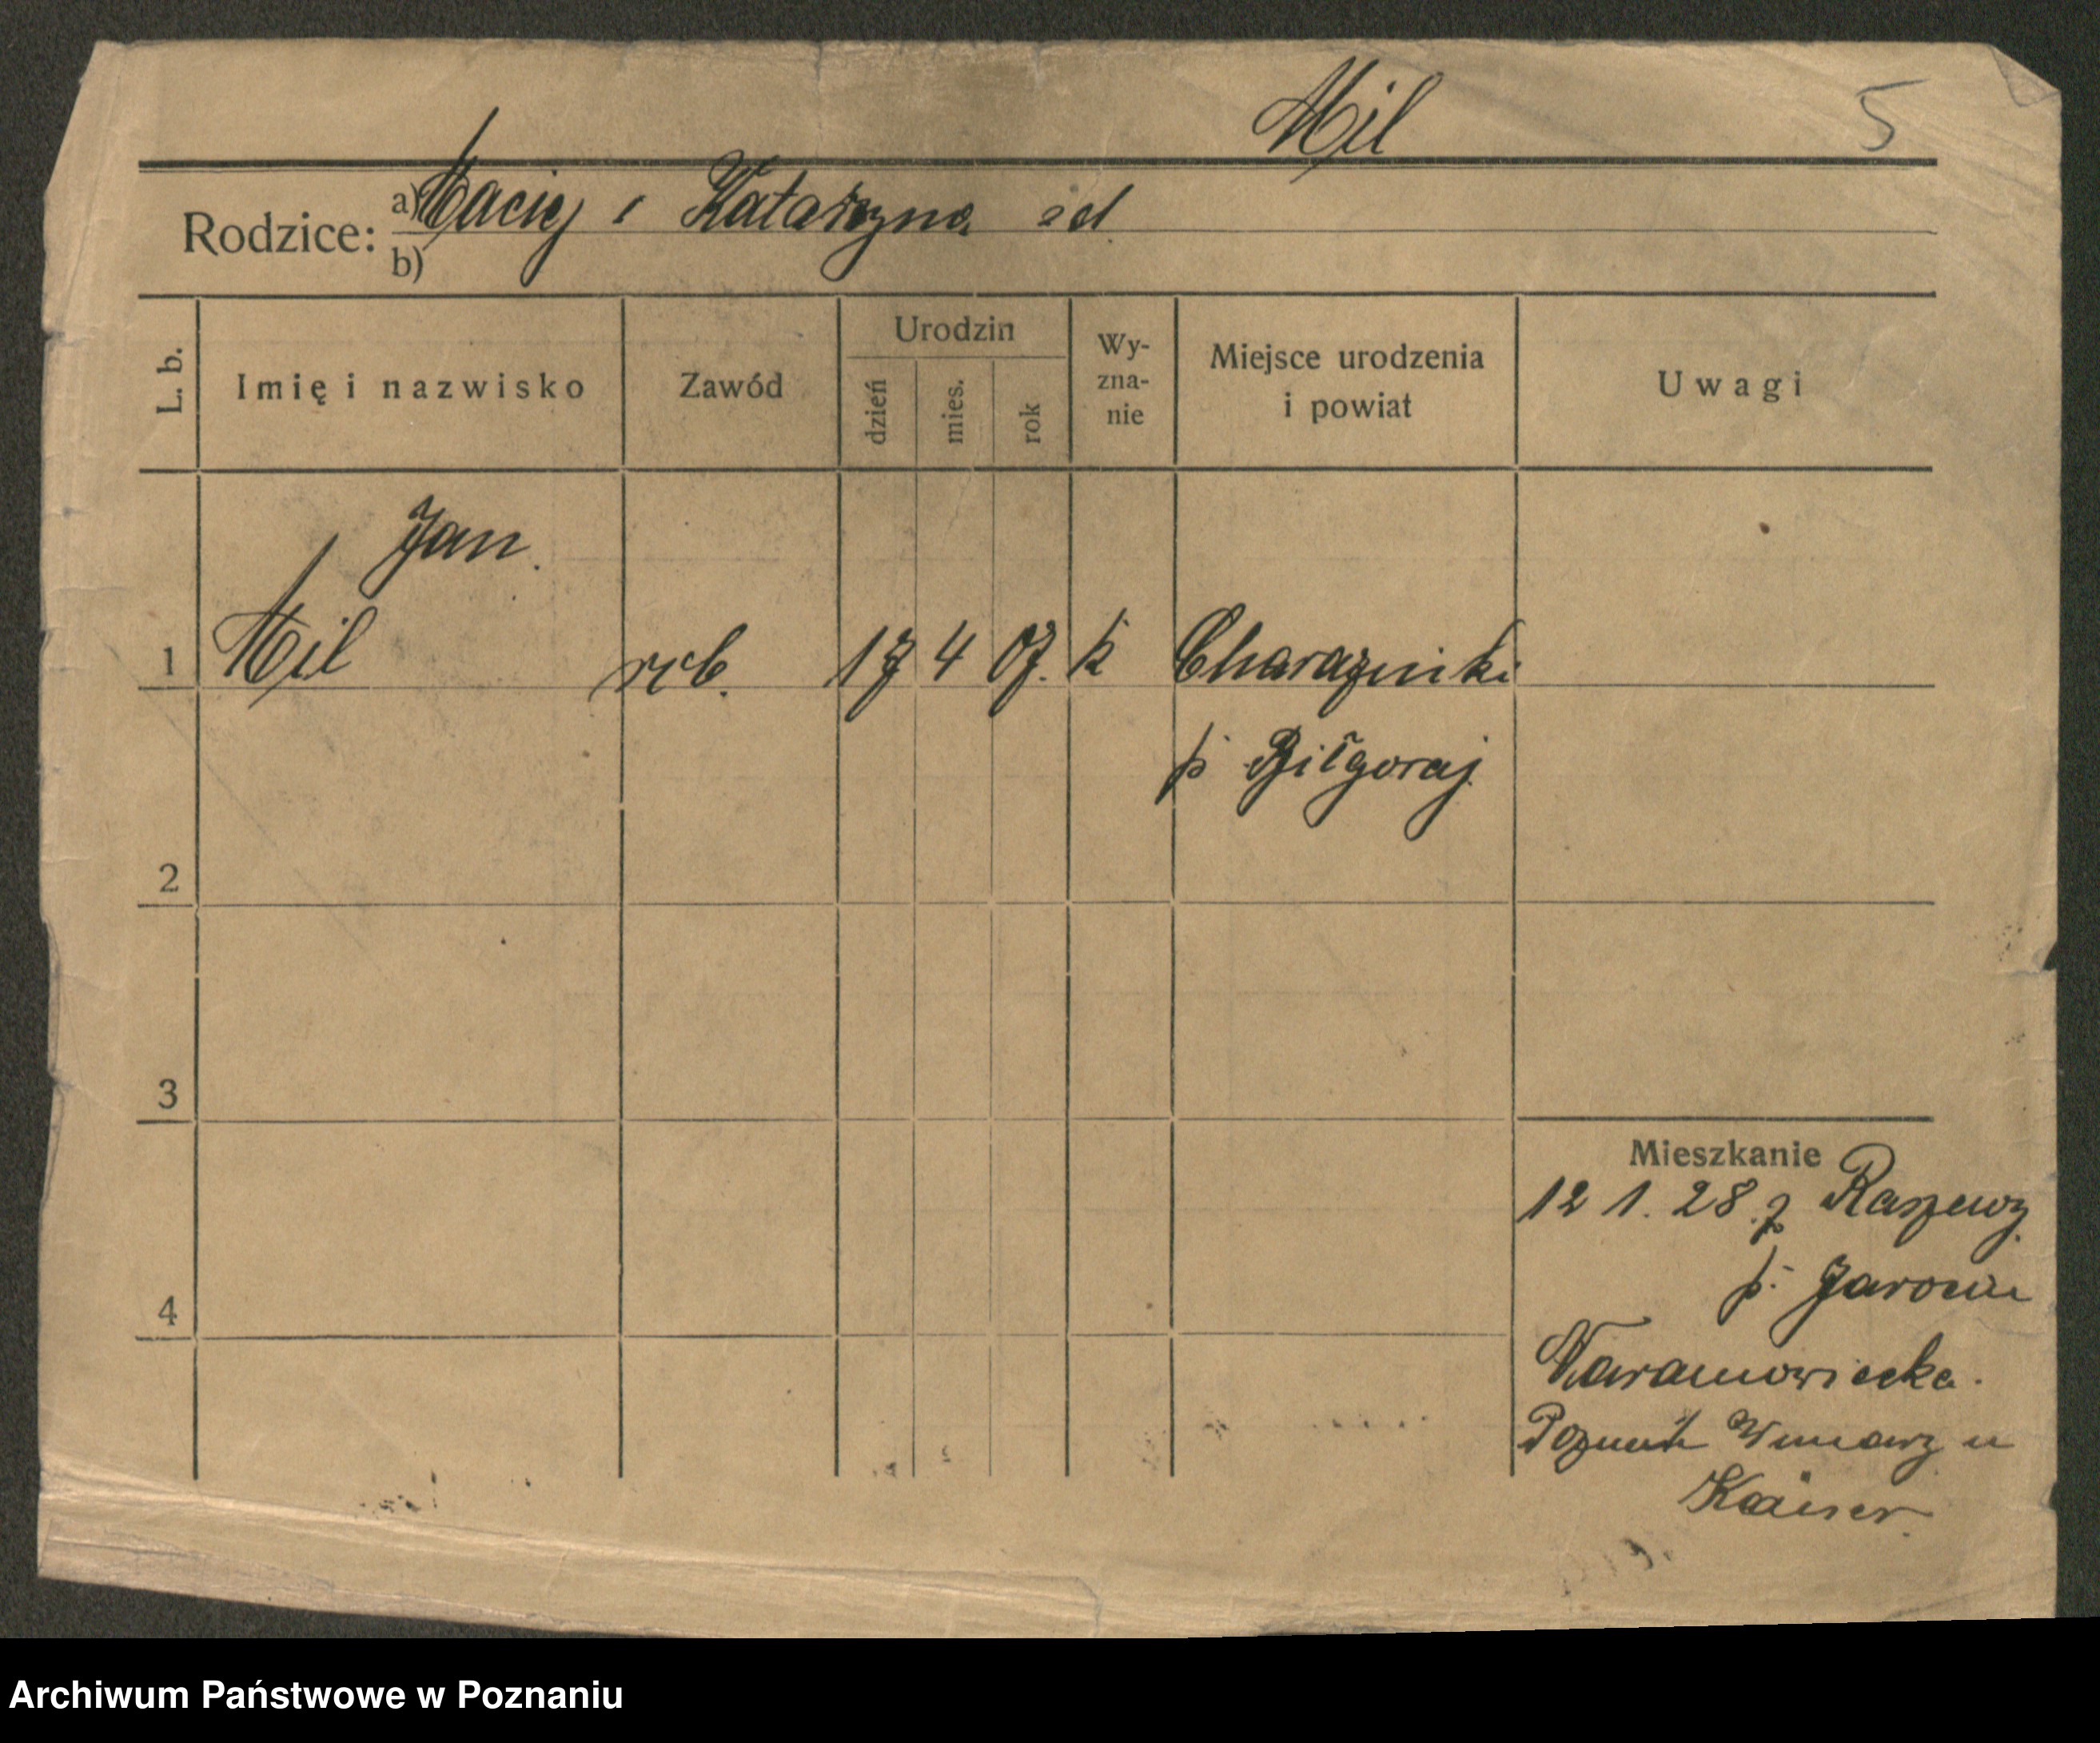 Mil 5
Rodzice: a) Maciej i Katarzyna
b)
L. b. Imię i nazwisko Zawód Urodzin dzień mies. rok Wy-zna-nie Miejsce urodzenia i powiat Uwagi
Jan.
1 Mil rob. 17 4 07. k Charazniki
p. Biłgoraj.
2
3
Mieszkanie
12 1. 28. z Raszewy
p. Jarocin
4
Naramowicka.
Poznań Winiary u
Kaiser.
Archiwum Państwowe w Poznaniu